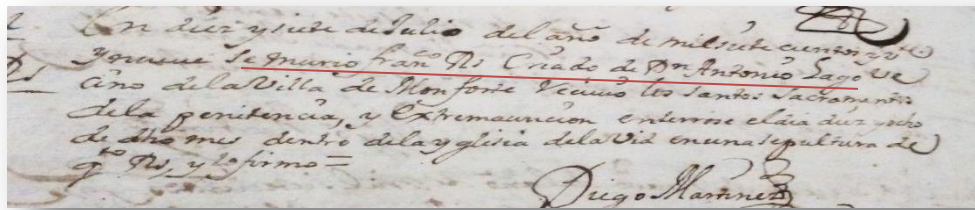 En diez y siete de Julio del año de mil siete cientos y
y nueve se murio fran.co Rs Criado de Dn Antonio Lago Ve
cino de la Villa de Monforte Recivio los Santos Sacramentos
de la penitencia, y Extremauncion enterrose el dia diez y ocho
de dho mes dentro de la yglisia de la Vid en una sepultura de
Rs, y lo firmo =
Diego Martinez